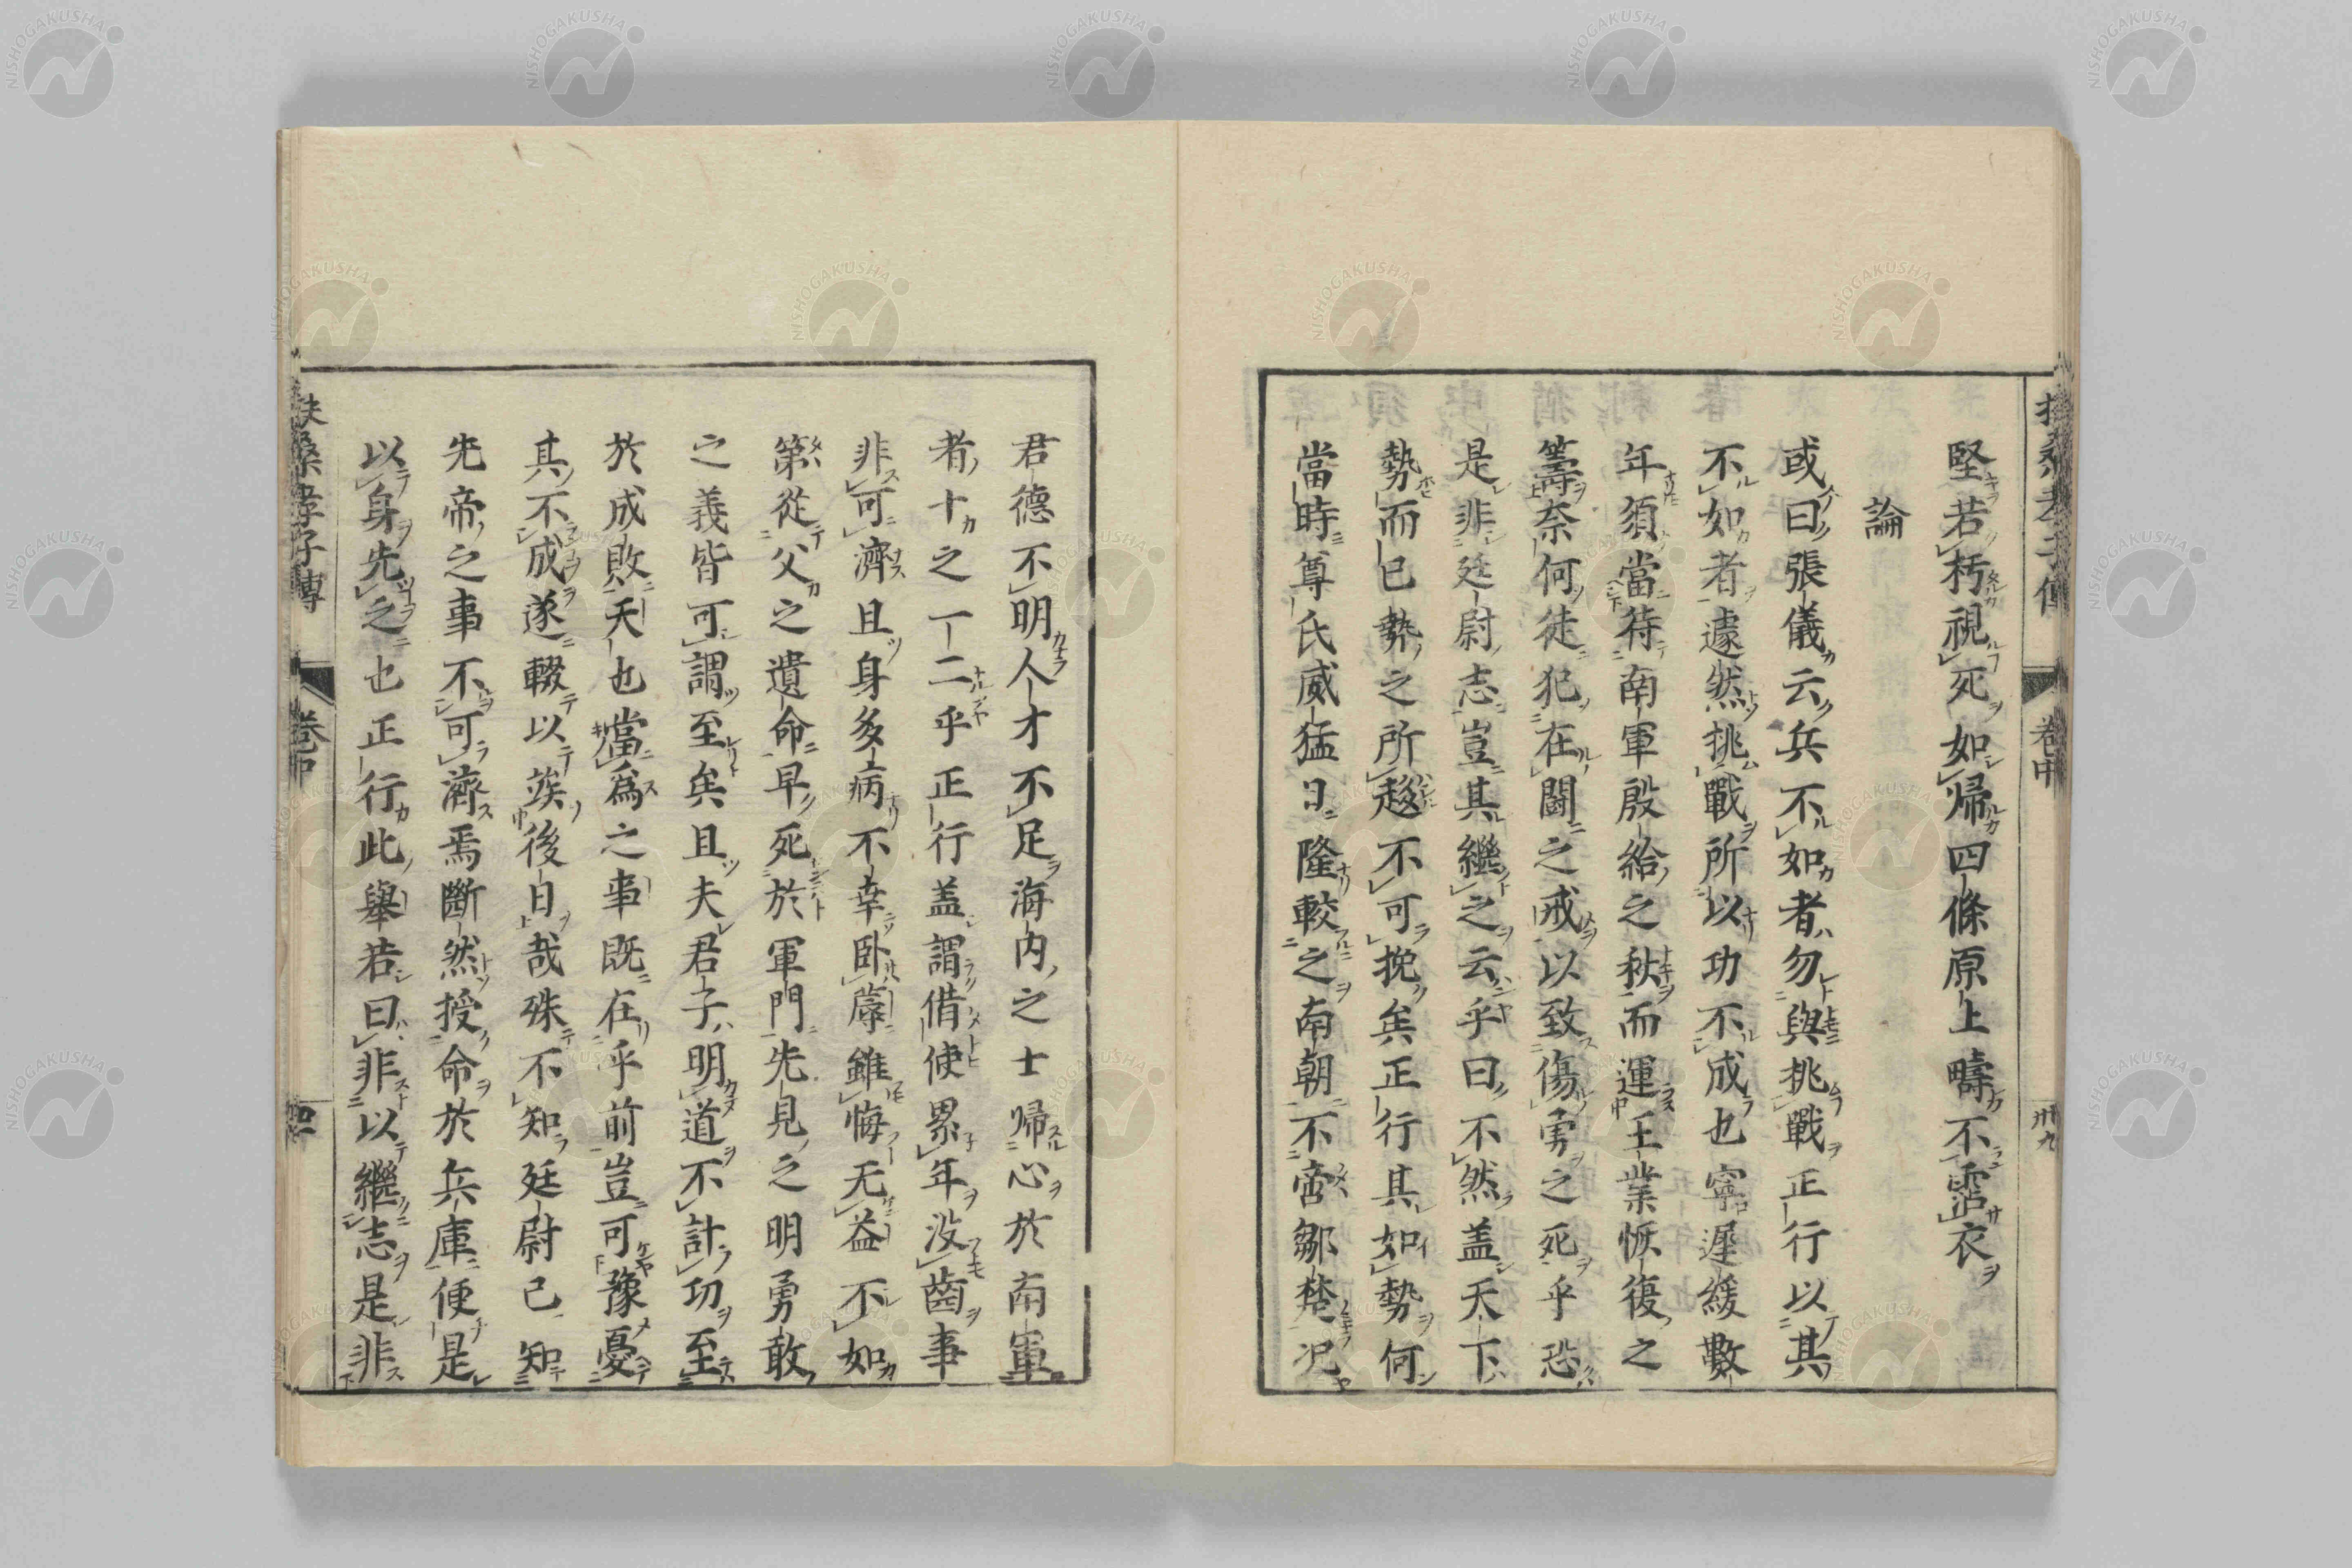 堅若朽視死如帰四條原上疇不霑衣
論
或曰張儀云兵不如者勿與挑戰正行以其
不如者遽然挑戰所以功不成也寧遲緩數
年須當待南軍殷給之秋而運王業恢復之
籌奈何徒犯在鬪之戒以致傷勇之死乎恐
是非廷尉志豈其繼之云乎曰不然盖天下
勢而已勢之所趍不可挽矣正行其如勢何
當時尊氏威猛日隆較之南朝不啻鄒楚况
君德不明人才不足海内之士帰心於南軍
者十之一二乎正行盖謂借使累年没齒事
非可濟且身多病不幸卧蓐雖悔无益不如
第從父之遺命早死於軍門先見之明勇敢
之義皆可謂至矣且夫君子明道不計功至
於成敗天也當爲之事既在乎前豈可豫憂
其不成遂輟以竢後日哉殊不知廷尉已知
先帝之事不可濟焉斷然授命於兵庫便是
以身先之也正行此舉若曰非以繼志是非
扶桑孝子傳
卷中
卅九
扶桑孝子傳
卷中
四十
NISHOGAKUSHA